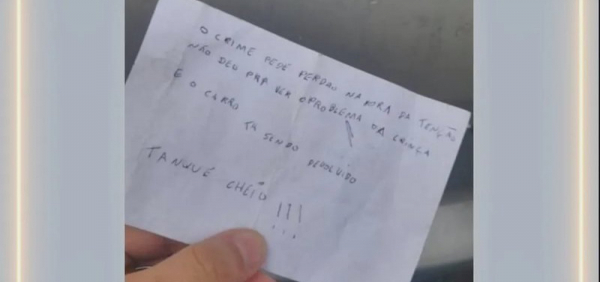 O CRIME PEDE PERDAO NA HORA DA TENÇÃO
NÃO DEU PRA VER O PROBLEMA DA CRIANÇA
E O CARRO
TA SENDO DEVOLVIDO
TANQUE CHEIO !!!